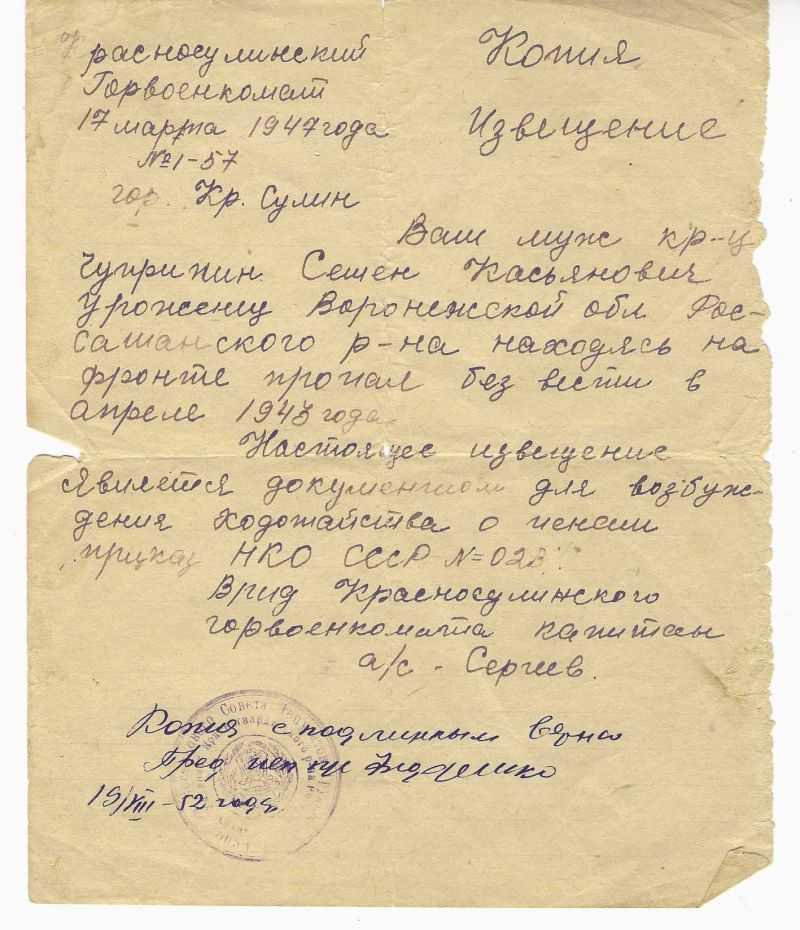 расносулинский
Горвоенкомат
17 марта 1947 года
№1-57
гор. Кр. Сулин
Копия
Извещение
Ваш муж кр-ц
Чуприжин Семен Касьянович
Урожениц Воронежской обл Рос-
сашанского р-на находясь на
фронте пропал без вести в
апреле 1943 года
Настоящее извещение
является документом для возбуж-
дения ходотайства о пенсии
приказ НКО СССР №=023
Врид Красносулинского
горвоенкомата капитан
а/с - Сергиев.
Копия с подлинным верно
Пред
19/VIII-52 года